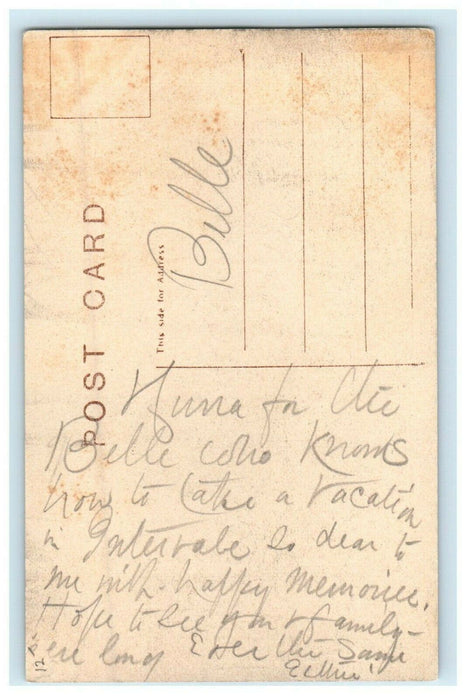 POST CARD
This side for Address
Belle
Hurra for the
Belle who knows
how to take a vacation
in Intervale so dear to
me with happy memories.
Hope to see you & family
ere long Ever the same